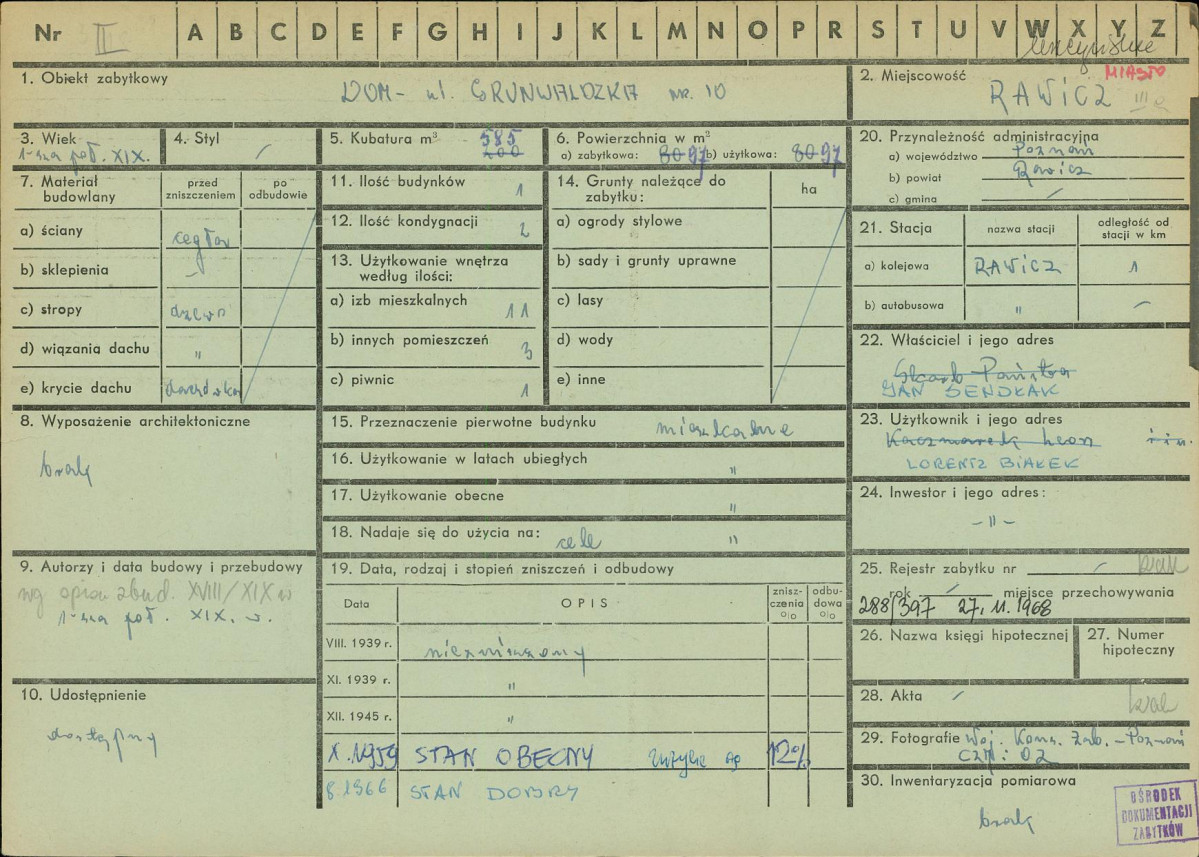 Nr II A B C D E F G H I J K L M N O P R S T U V W X Y Z
1. Obiekt zabytkowy
DOM - ul. GRUNWALDZKA nr. 10
2. Miejscowość
MIASTO
RAWICZ
3. Wiek
1-sza poł. XIX.
4. Styl
5. Kubatura m³ 585
200
6. Powierzchnia w m²
a) zabytkowa: 80 97 b) użytkowa: 80 97
20. Przynależność administracyjna
a) województwo Poznań
b) powiat Rawicz
c) gmina
7. Materiał budowlany
przed zniszczeniem
po odbudowie
a) ściany
b) sklepienia
c) stropy
d) wiązania dachu "
e) krycie dachu
11. Ilość budynków 1
12. Ilość kondygnacji 2
13. Użytkowanie wnętrza według ilości:
a) izb mieszkalnych 11
b) innych pomieszczeń 3
c) piwnic 1
14. Grunty należące do zabytku:
ha
a) ogrody stylowe
b) sady i grunty uprawne
c) lasy
d) wody
e) inne
21. Stacja
nazwa stacji
odległość od stacji w km
a) kolejowa RAWICZ 1
b) autobusowa " -
22. Właściciel i jego adres
Skarb Państwa
JAN SENDŁAK
8. Wyposażenie architektoniczne
brak
15. Przeznaczenie pierwotne budynku mieszkalne
16. Użytkowanie w latach ubiegłych "
17. Użytkowanie obecne "
18. Nadaje się do użycia na: cele "
23. Użytkownik i jego adres
Kaczmarek Leon i in.
LORENTZ BIAŁEK
24. Inwestor i jego adres:
- " -
9. Autorzy i data budowy i przebudowy
wg opisu zbud. XVIII/XIX w
1-sza poł. XIX. w.
10. Udostępnienie
dostępny
19. Data, rodzaj i stopień zniszczeń i odbudowy
Data
OPIS
znisz-
czenia
o/o
odbu-
dowa
o/o
VIII. 1939 r. niezniszczony
XI. 1939 r. "
XII. 1945 r. "
X. 1959 STAN OBECNY 12%
8.1966 STAN DOBRY
25. Rejestr zabytku nr - brak
rok miejsce przechowywania
288/397 27. 11. 1968
26. Nazwa księgi hipotecznej
27. Numer hipoteczny
28. Akta brak
29. Fotografie Woj. Kons. Zab. - Poznań
30. Inwentaryzacja pomiarowa
brak
OŚRODEK
DOKUMENTACJI
ZABYTKÓW